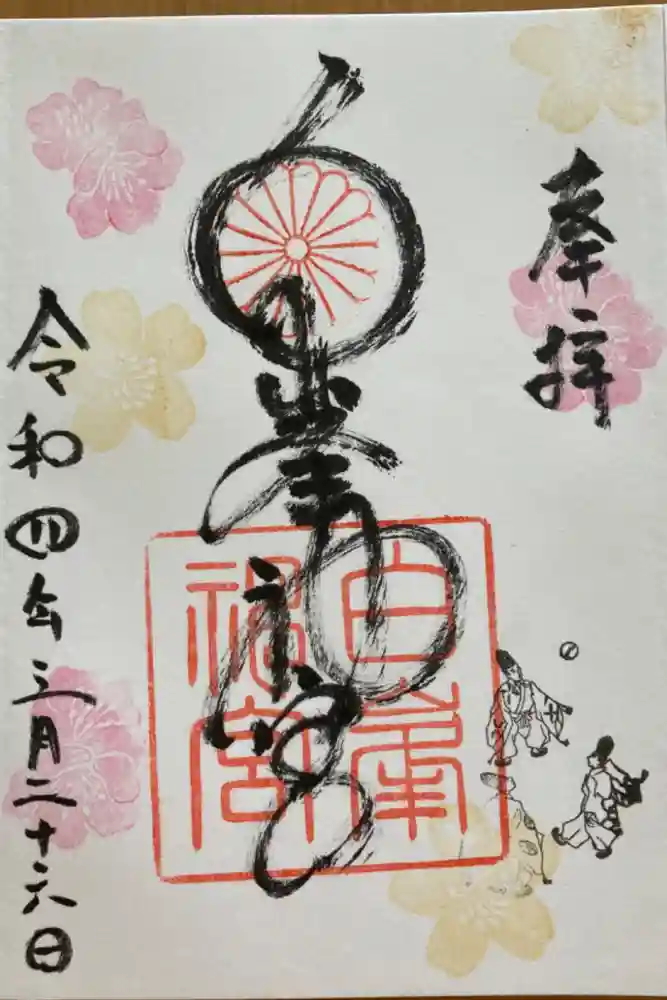 奉拝
白峯神宮
白峯
神宮
令和四年三月二十六日